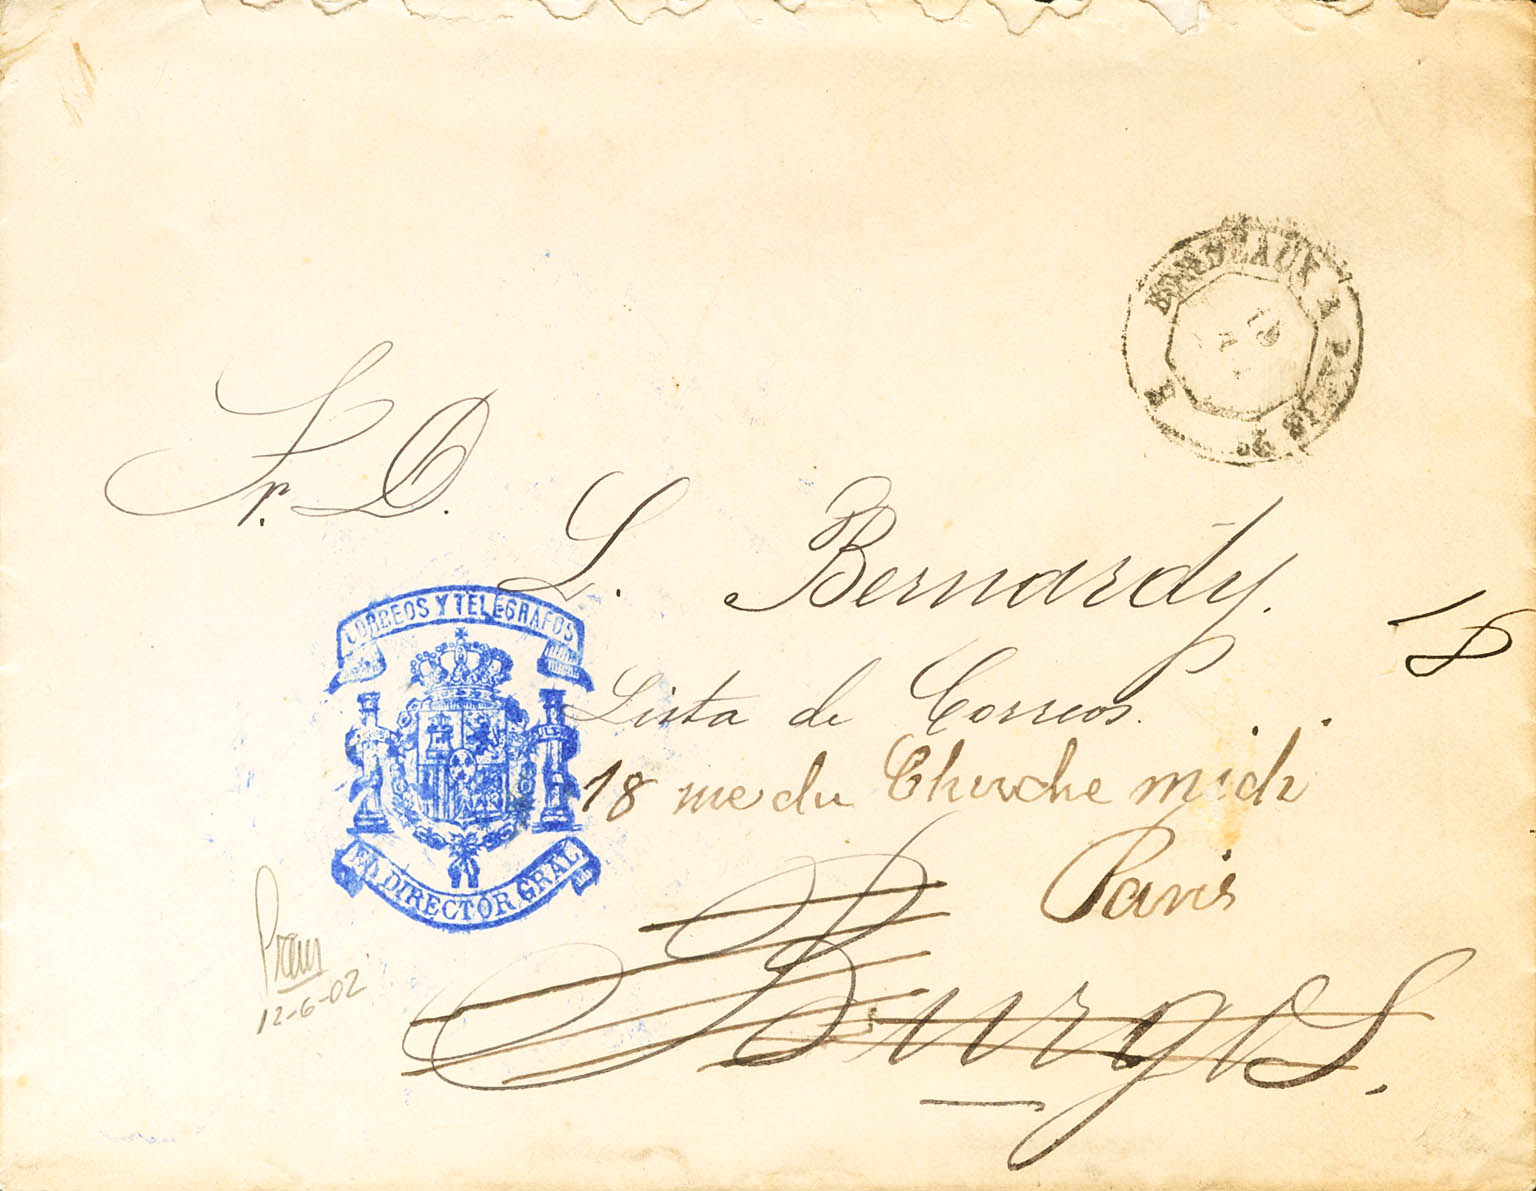 BORDEAUX A PARIS
Sr. D.
L. Bernardy.
CORREOS Y TELEGRAFOS
Lista de Correos.
18 rue du Cherche midi
Paris
EL DIRECTOR GRAL
Burgos.
12-6-02